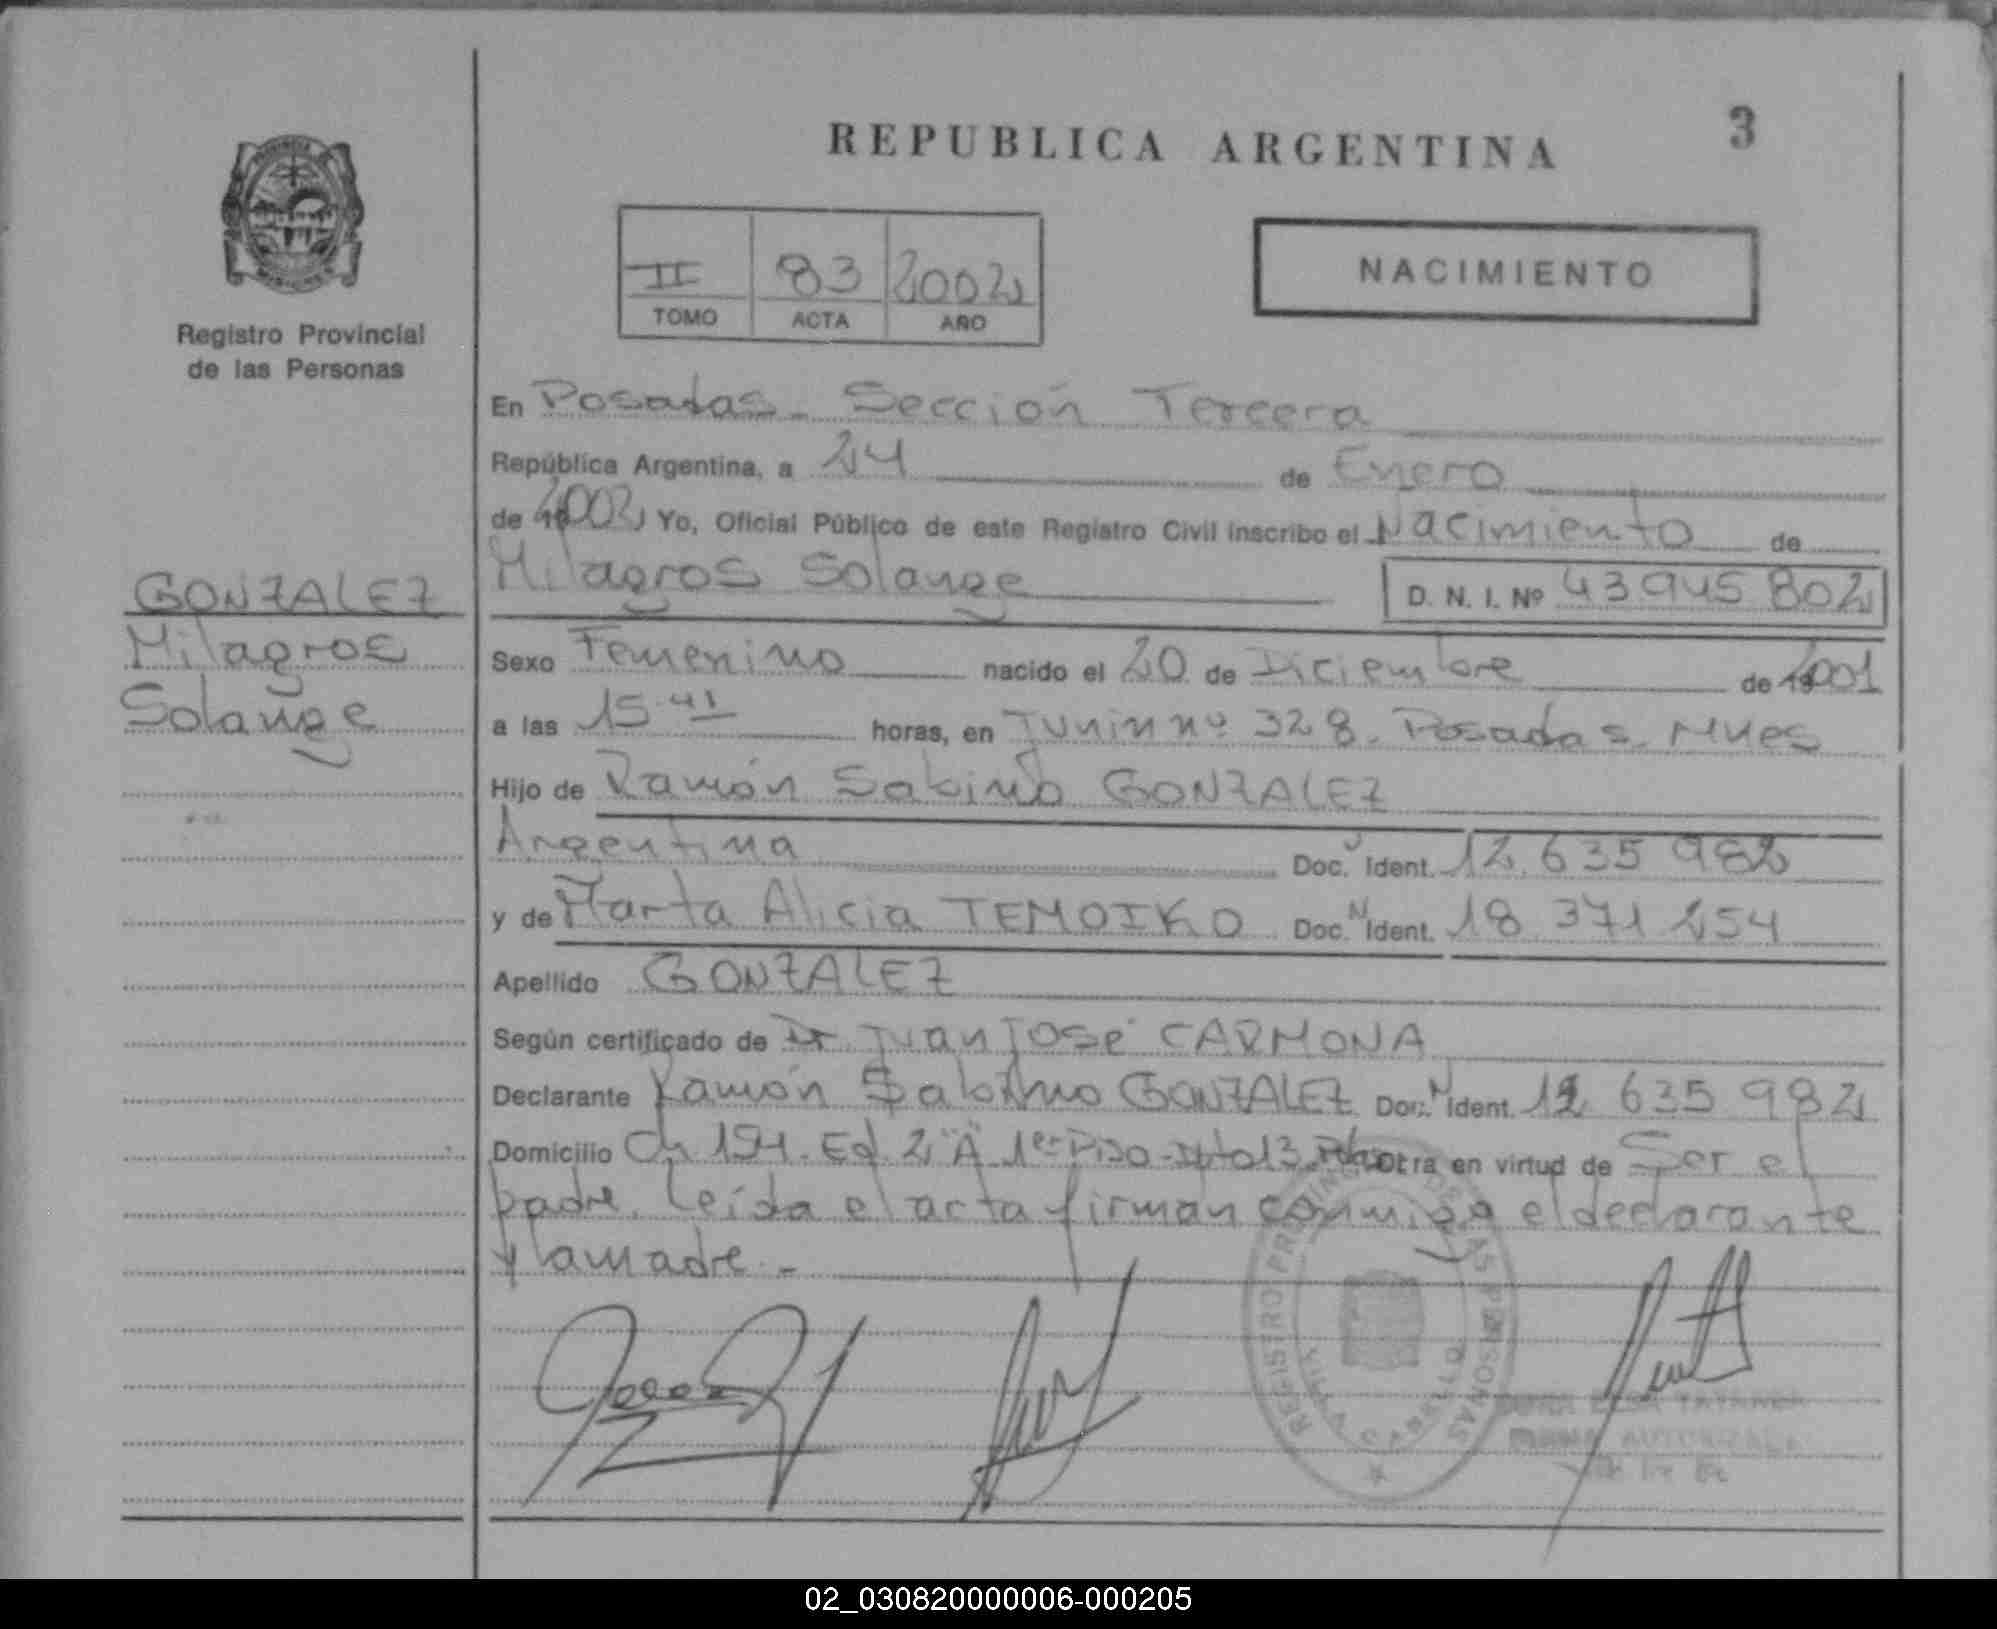 REPUBLICA ARGENTINA
3
Registro Provincial
de las Personas
II 83 2002
TOMO ACTA AÑO
NACIMIENTO
En Posadas - Sección Tercera
República Argentina, a 24 de Enero
de 2002 Yo, Oficial Público de este Registro Civil inscribo el Nacimiento de
Milagros Solange D. N. I. Nº 43 945 802
GONZALEZ
Milagros
Solange
Sexo Femenino nacido el 20 de Diciembre de 2001
a las 15 41 horas, en Junin nº 328. Posadas. Mnes
Hijo de Ramón Sabino GONZALEZ
Argentina Doc. Ident. 12 635 982
y de Marta Alicia TEMOIKO Doc. Ident. 18 371 254
Apellido GONZALEZ
Según certificado de Dr Juan José CARMONA
Declarante Ramón Sabino GONZALEZ Doc. Ident. 12 635 982
Domicilio Ch 154. Ed. 2 "A" 1er Piso - Dto 13. en virtud de Ser el
padre. Leída el acta firman conmigo el declarante
y la madre. -
REGISTRO PROVINCIAL DE LAS PERSONAS
VILLA CABELLO
02_030820000006-000205